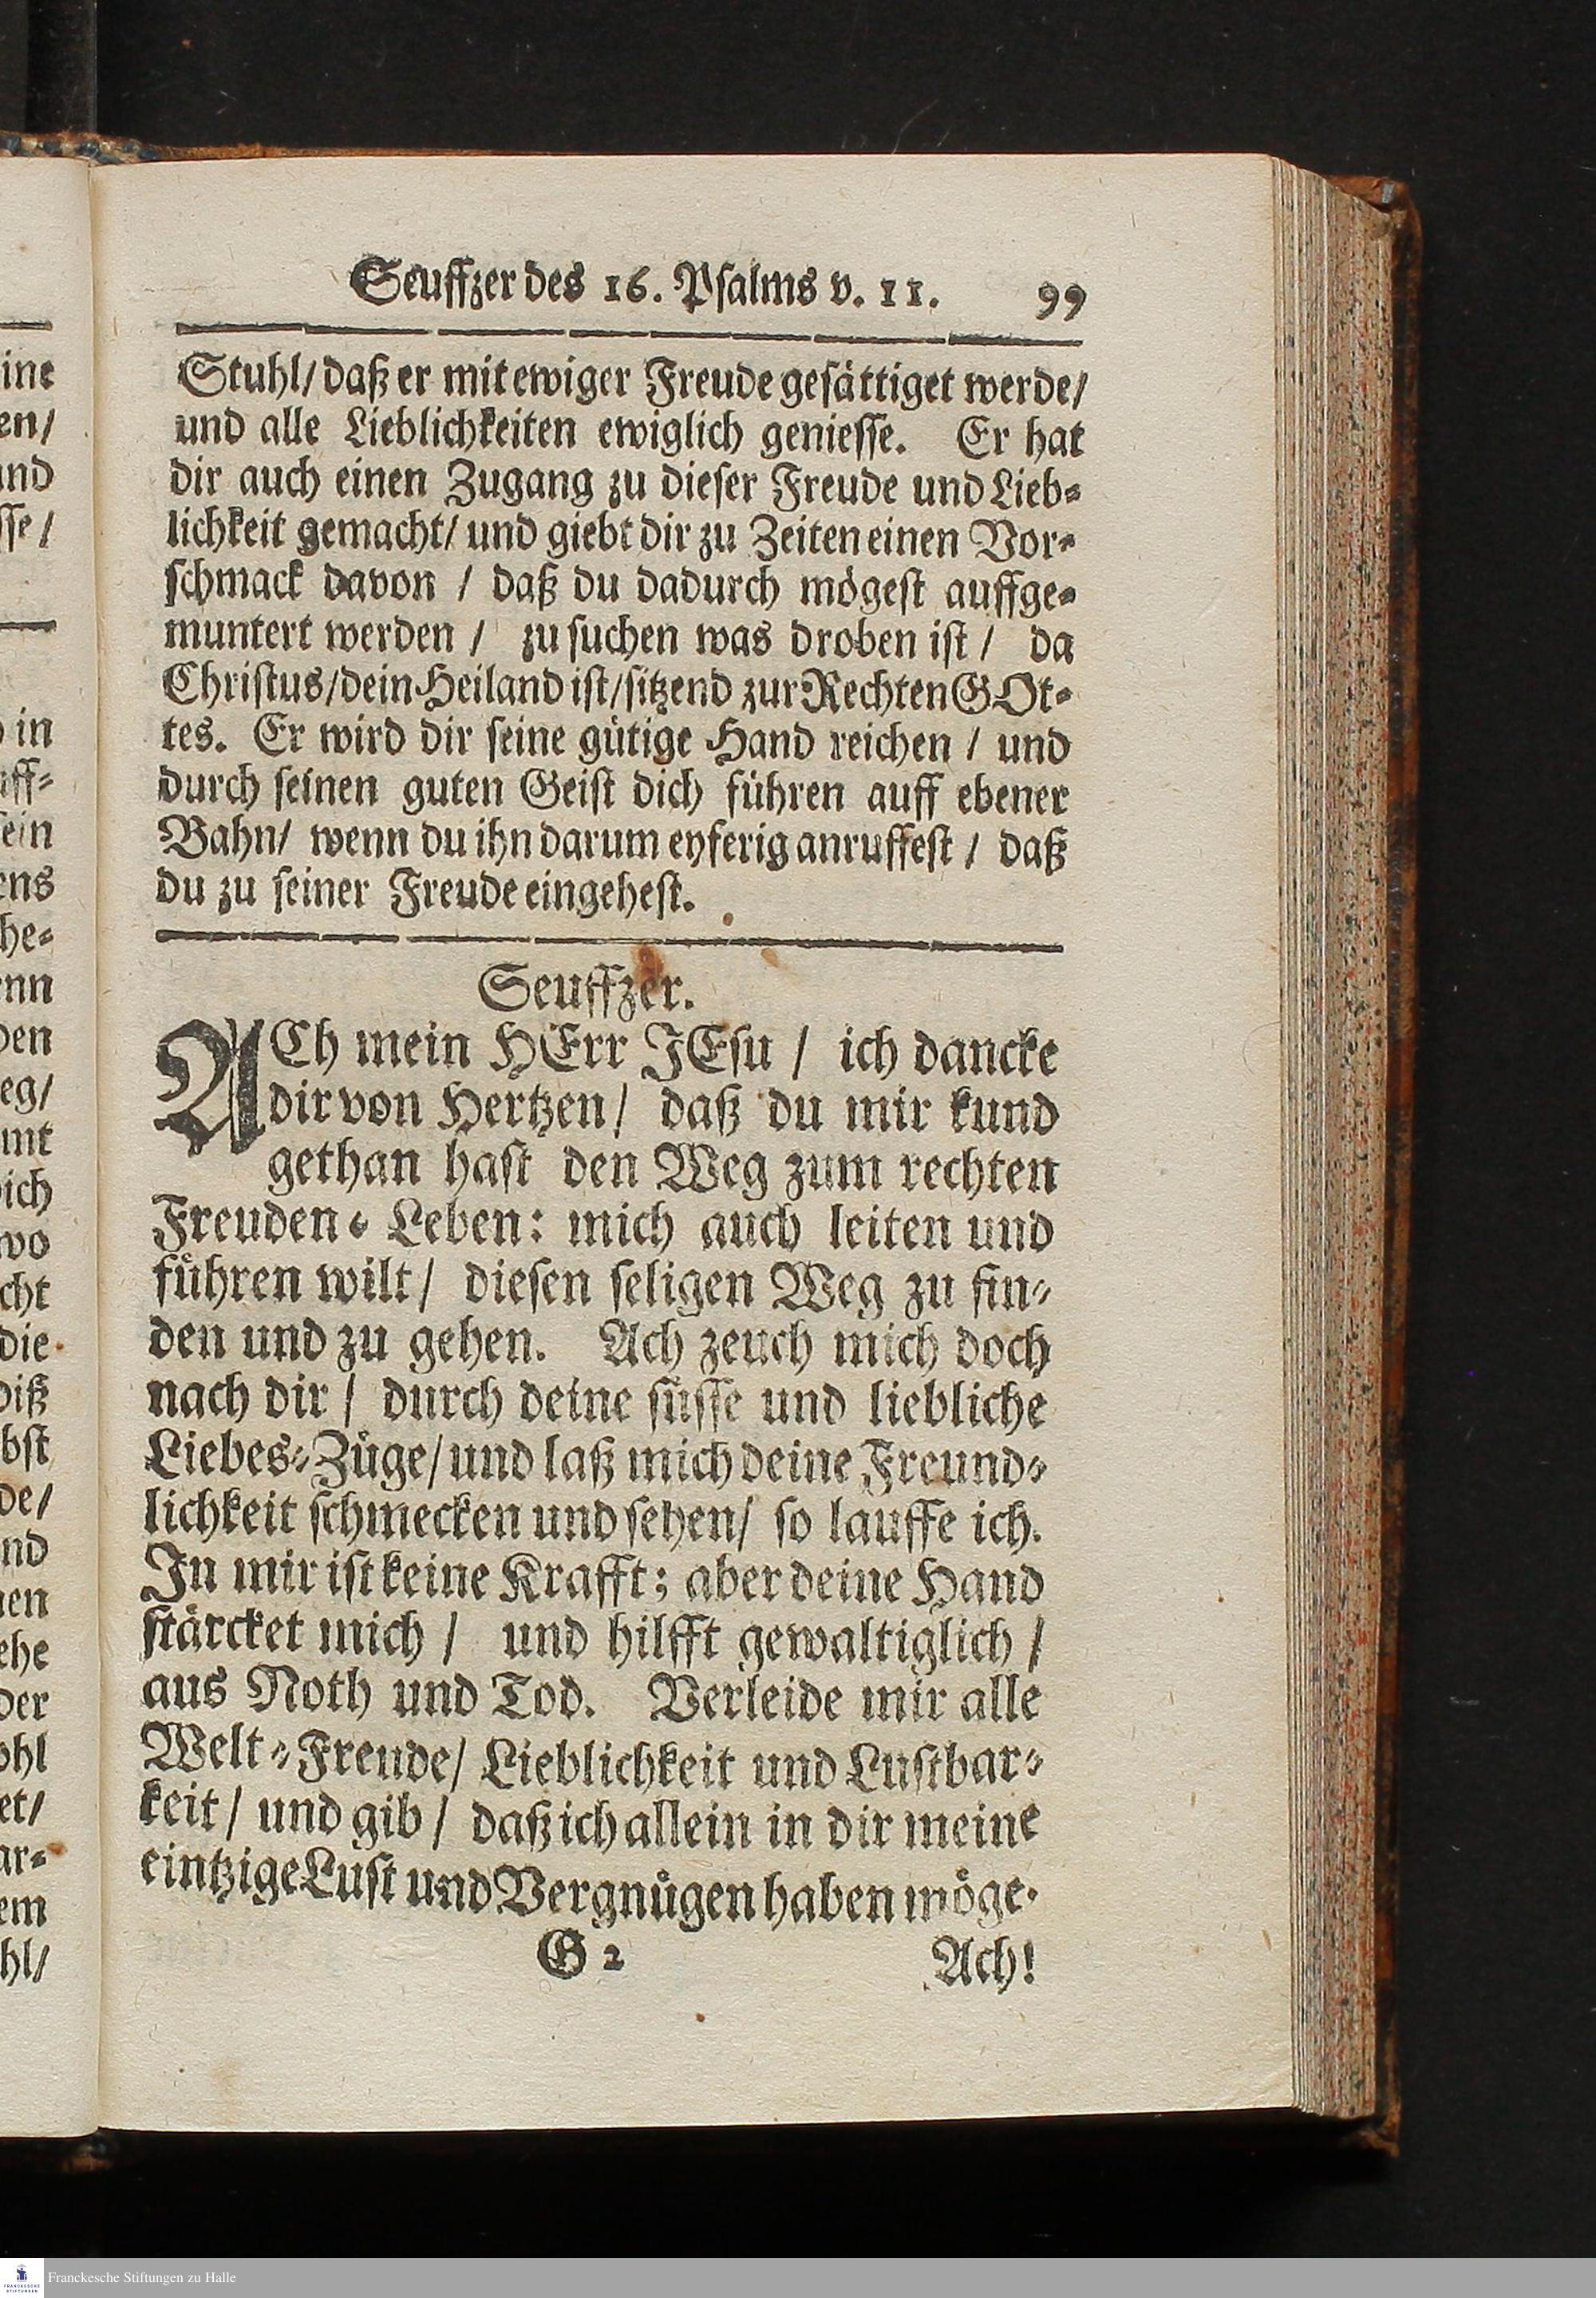 Seuffzer des 16. Psalms v. 11. 99
Stuhl/ daß er mit ewiger Freude gesättiget werde/
und alle Lieblichkeiten ewiglich geniesse. Er hat
dir auch einen Zugang zu dieser Freude und Lieb-
lichkeit gemacht/ und giebt dir zu Zeiten einen Vor-
schmack davon / daß du dadurch mögest auffge-
muntert werden / zu suchen was droben ist / da
Christus/ dein Heiland ist/ sitzend zur Rechten GOt-
tes. Er wird dir seine gütige Hand reichen / und
durch seinen guten Geist dich führen auff ebener
Bahn/ wenn du ihn darum eyferig anruffest / daß
du zu seiner Freude eingehest.
Seuffzer.
ACh mein HErr JEsu / ich dancke
dir von Hertzen/ daß du mir kund
gethan hast den Weg zum rechten
Freuden-Leben: mich auch leiten und
führen wilt/ diesen seligen Weg zu fin-
den und zu gehen. Ach zeuch mich doch
nach dir / durch deine süsse und liebliche
Liebes-Züge/ und laß mich deine Freund-
lichkeit schmecken und sehen/ so lauffe ich.
In mir ist keine Krafft; aber deine Hand
stärcket mich / und hilfft gewaltiglich /
aus Noth und Tod. Verleide mir alle
Welt-Freude/ Lieblichkeit und Lustbar-
keit / und gib / daß ich allein in dir meine
eintzige Lust und Vergnügen haben möge.
G 2 Ach!
ine
en/
und
sse /
in
uff-
sein
ens
he-
enn
den
eg/
mt
ich
wo
cht
die
diß
bst
de/
nd
nen
ehe
der
ohl
et/
ar-
em
hl/
Franckesche Stiftungen zu Halle